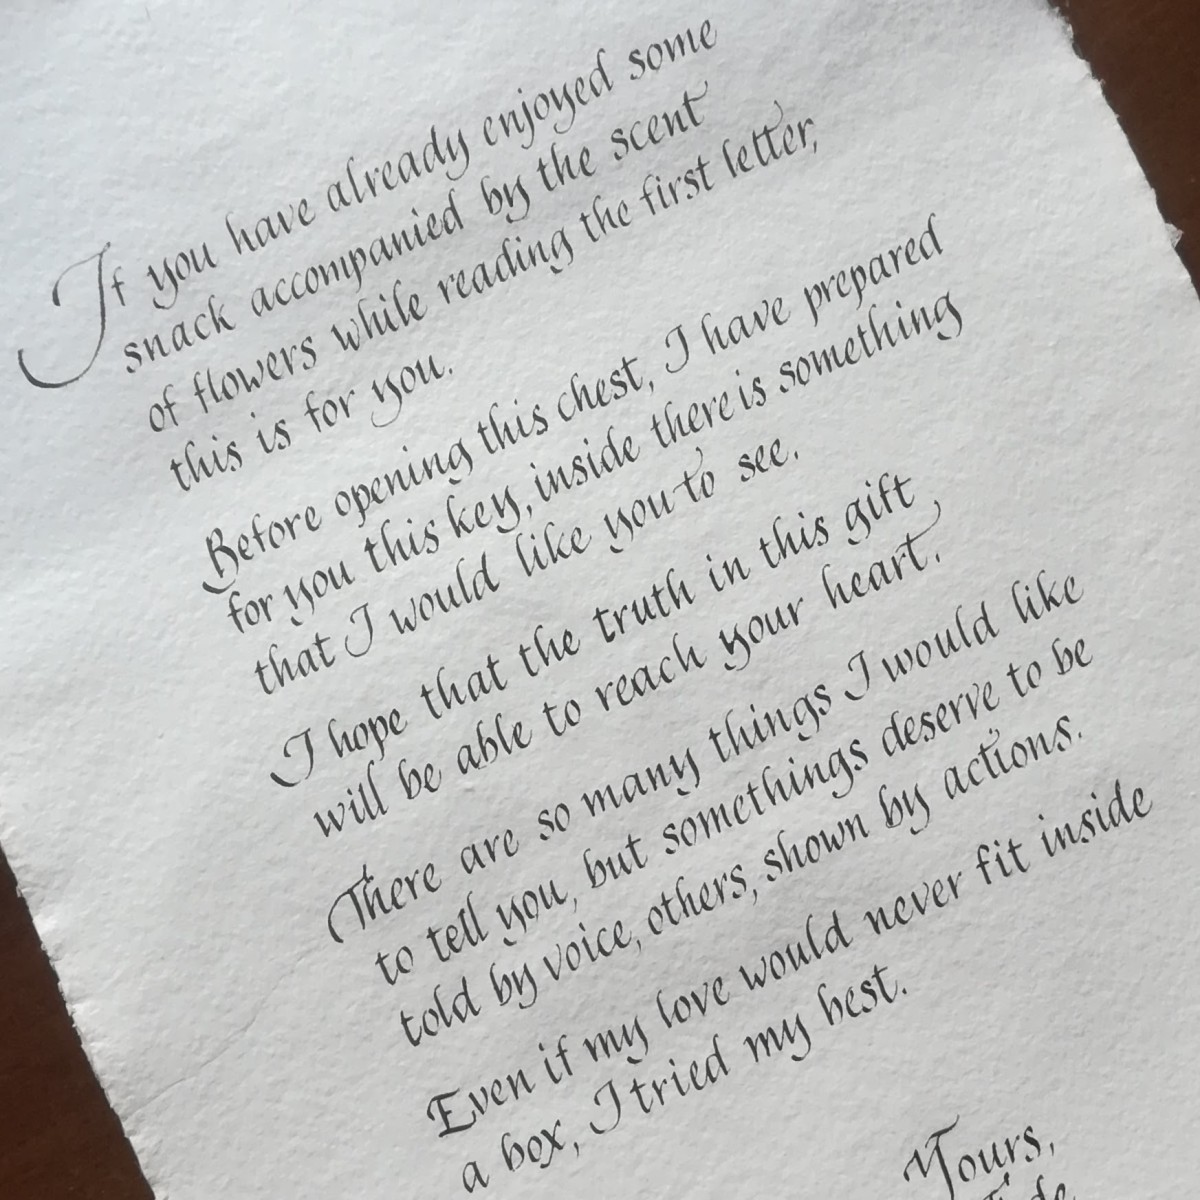 If you have already enjoyed some
snack accompanied by the scent
of flowers while reading the first letter,
this is for you.
Before opening this chest, I have prepared
for you this key, inside there is something
that I would like you to see.
I hope that the truth in this gift
will be able to reach your heart.
There are so many things I would like
to tell you, but somethings deserve to be
told by voice, others, shown by actions.
Even if my love would never fit inside
a box, I tried my best.
Yours,